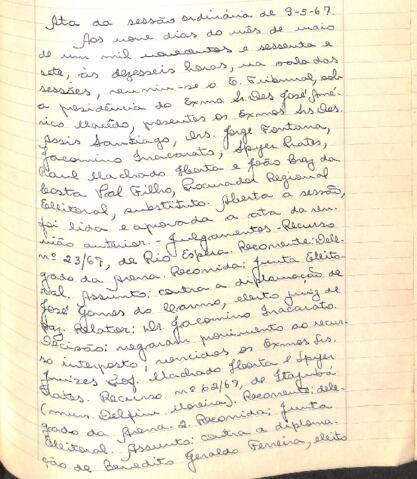 Ata da sessão ordinária de 9-5-67.
Aos nove dias do mês de maio
de um mil novecentos e sessenta e
sete, às dezesseis horas, na sala das
sessões, reuniu-se o E. Tribunal, sob
a presidência do Exmo Sr. Des. José Amé-
rico Macêdo, presentes os Exmos Srs. Des.
Assis Santiago, Drs. Jorge Fontana,
Jacomino Inacarato, Spyer Prates,
Paul Machado Horta e João Braz da
Costa Val Filho, Procurador Regional
Eleitoral, substituto. Aberta a sessão,
foi lida e aprovada a ata da reu-
nião anterior. - Julgamentos - Recurso
nº 23/67, de Rio Espera. Recorrente: Dele-
gado da Arena. Recorrida: Junta Eleito-
ral. Assunto: contra a diplomação de
José Gomes do Carmo, eleito juiz de
Paz. Relator: Dr. Jacomino Inacarato.
Decisão: negaram provimento ao recur-
so interposto, vencidos os Exmos Srs.
Juízes Prof. Machado Horta e Spyer
Prates. Recurso nº 62/67, de Itajubá
(mun. Delfim Moreira). Recorrente: dele-
gado da Arena-2. Recorrida: Junta
Eleitoral. Assunto: contra a diploma-
ção de Benedito Geraldo Ferreira, eleito